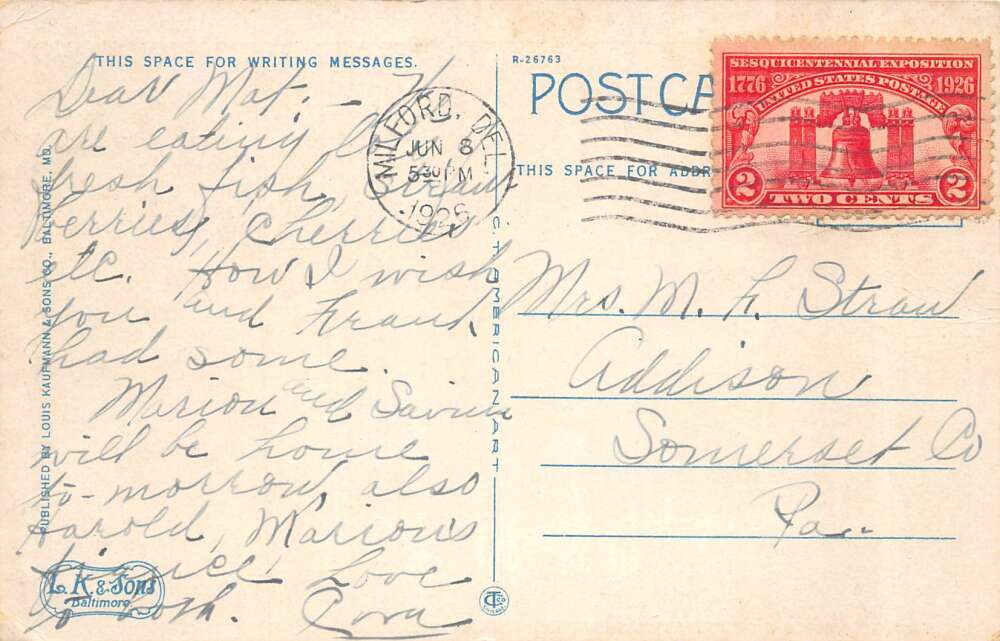 THIS SPACE FOR WRITING MESSAGES.
Dear Mat, – We
are eating
fresh fish,
berries, cherries
etc. How I wish
you and Frank
had some.
Marion and
will be home
to-morrow, also
Harold, Marion's
fiance. Love
to both. Cora
PUBLISHED BY LOUIS KAUFMANN & SONS CO., BALTIMORE, MD.
L. K. & Sons
Baltimore.
C. T. AMERICAN ART
R-26763
POSTCA
THIS SPACE FOR ADDR
MILFORD, DEL.
JUN 8
5 30 PM
1926
SESQUICENTENNIAL EXPOSITION
1776 UNITED STATES POSTAGE 1926
2 TWO CENTS 2
Mrs. M. L. Straw
Addison
Somerset Co
Pa.